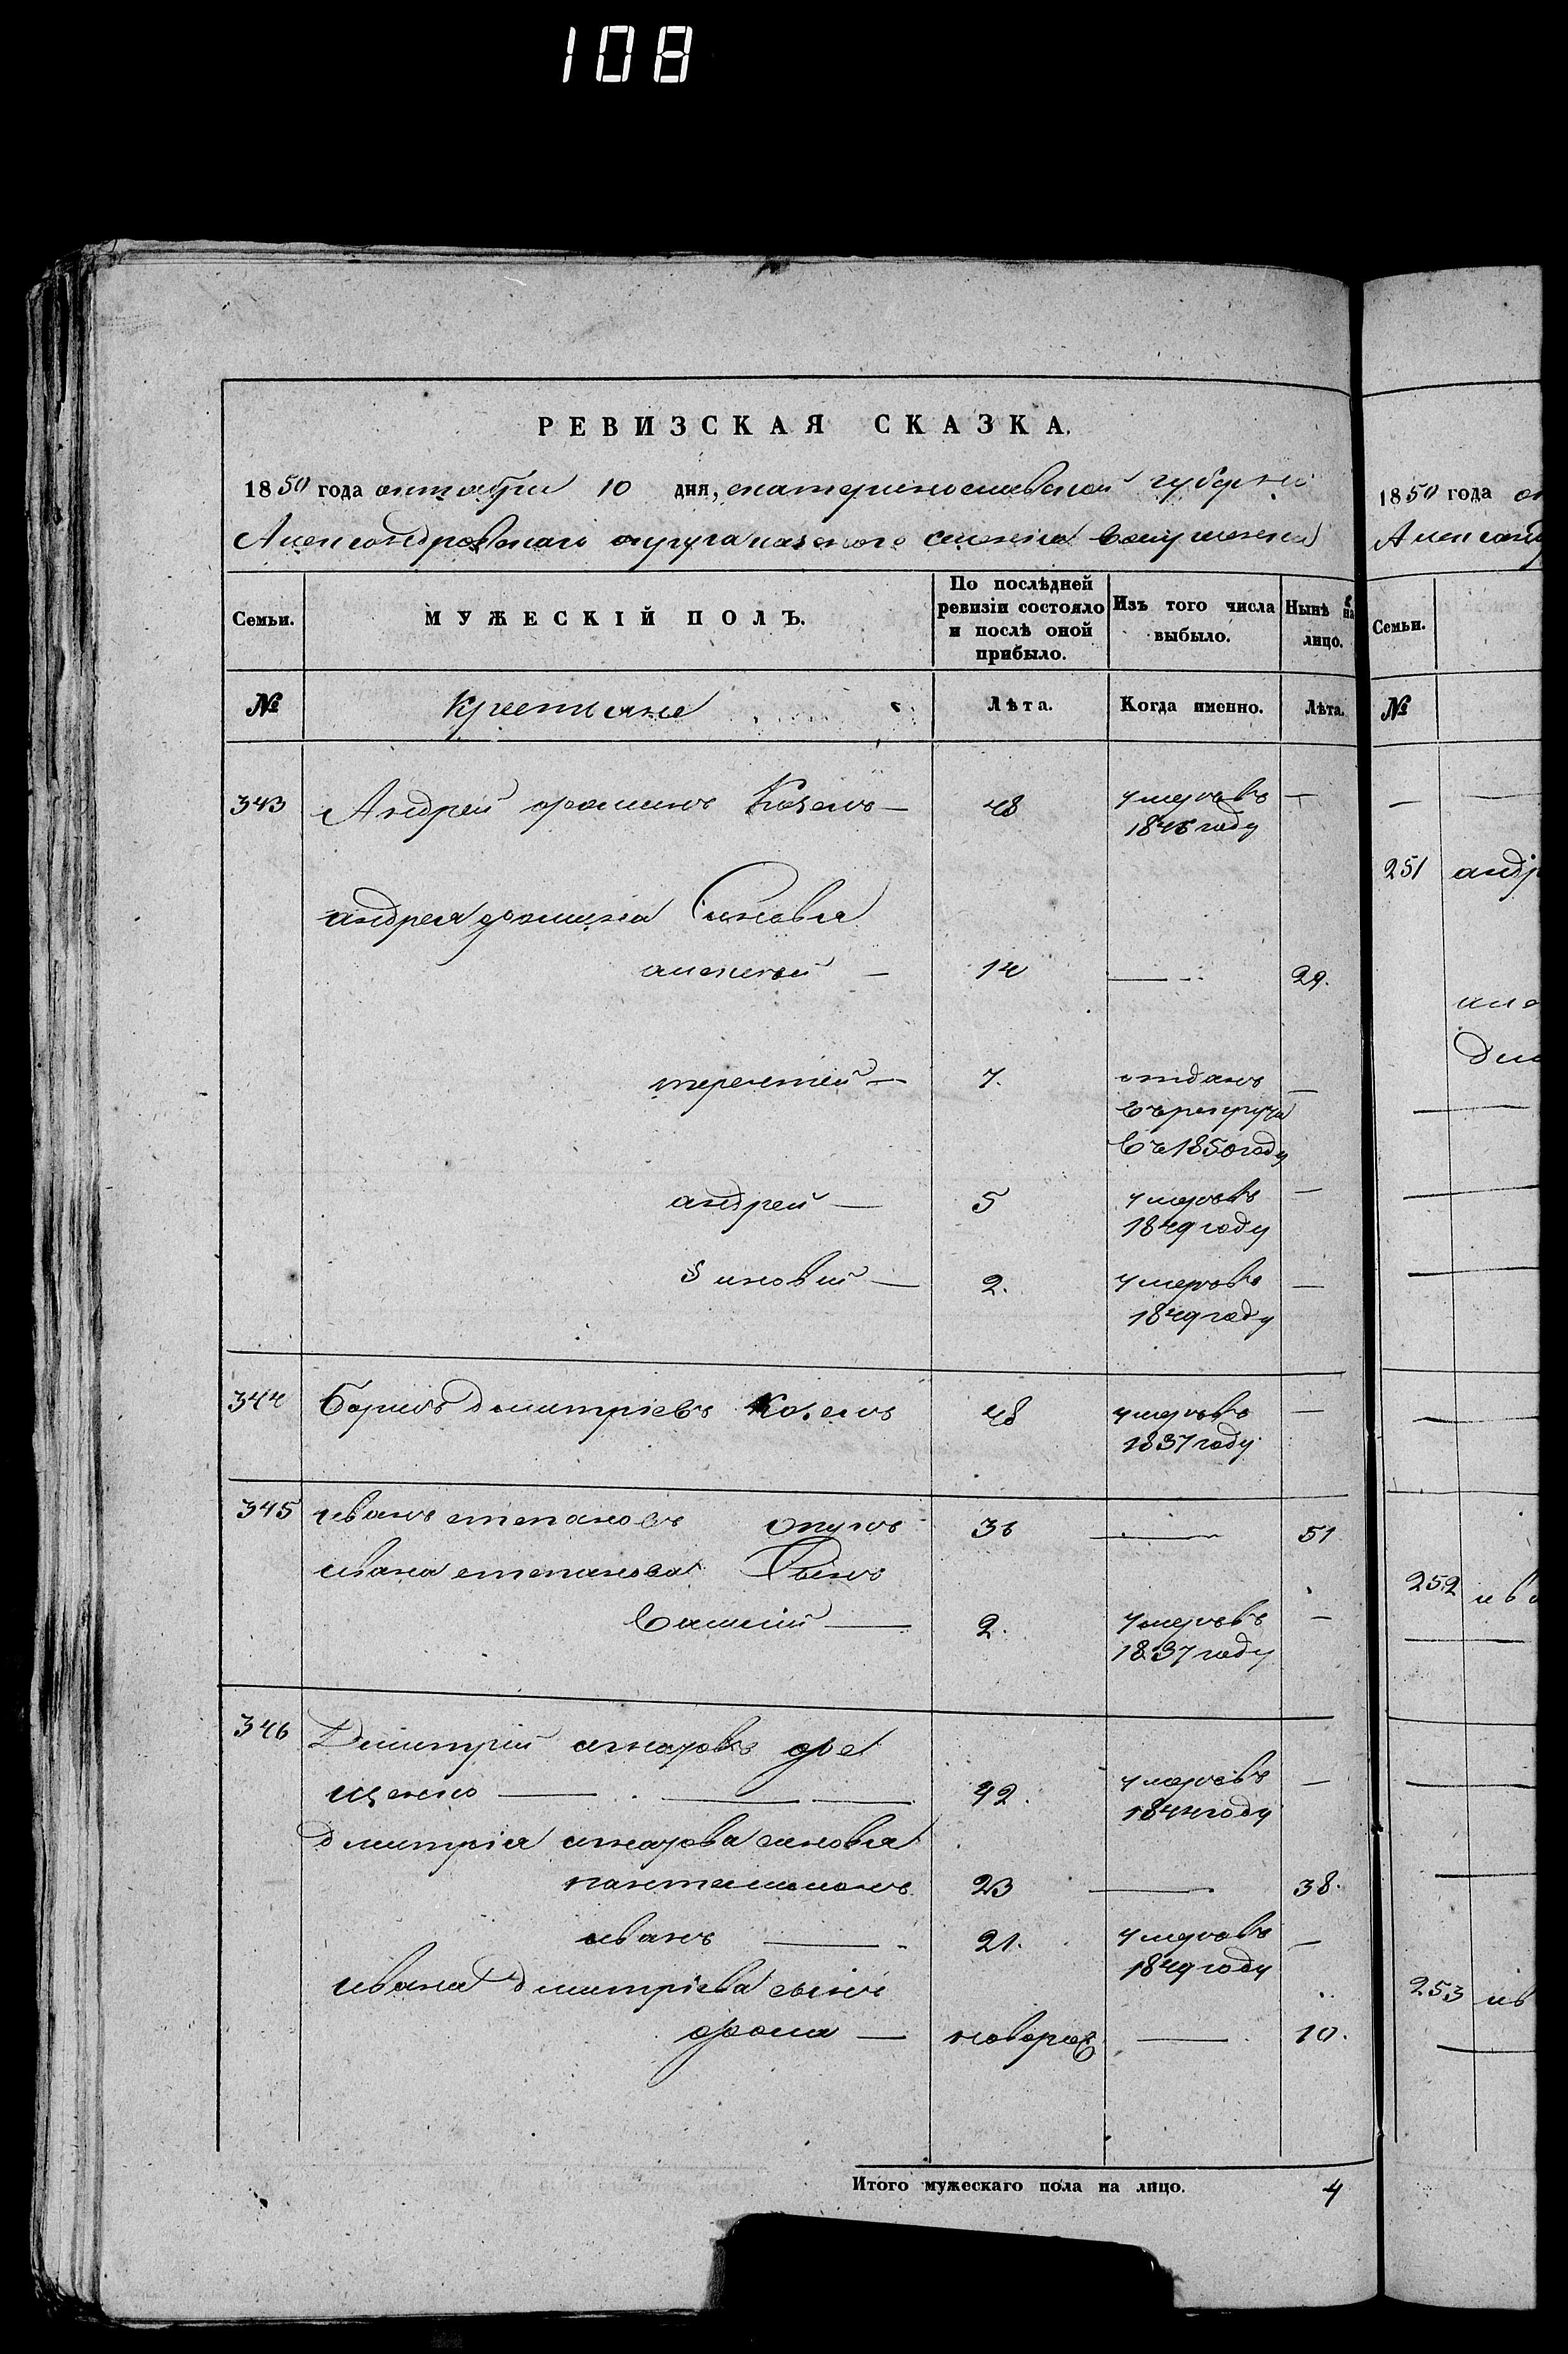 108
РЕВИЗСКАЯ СКАЗКА.
1850 года октября 10 дня, екатеринославской губерни
Александровскаго округа казеного селения
Семьи.
МУЖЕСКІЙ ПОЛЪ.
По послѣдней ревизіи состояло и послѣ оной прибыло.
Изъ того числа выбыло.
Нынѣ на лицо.
№
Крестьяне
Лѣта.
Когда именно.
Лѣта.
343 Андрей фоминъ Козелъ — 48 умеръвъ —
1845 году
андрея фомина Синовья
алексей — 14 — 29.
терентей — 7. отданъ —
въ рекруты
въ 1850 году
андрей — 5 умеръвъ —
1849 году
Зиновий — 2. умеръвъ —
1849 году
344 Борисъ дмитріевъ Козелъ 48 умеръвъ —
1837 году
345 иванъ степановъ 36 — 51
ивана степанова Сынъ
Василий — 2. умеръвъ —
1837 году
346 Дмитрий азаровъ фе
щенко — 42. умеръвъ —
1844 году
дмитрія азарова синовья
пантелимонъ 23 — 38.
иванъ — 21. умеръвъ —
1849 году
ивана дмитріева сынъ
фома — новорож — 10.
Итого мужескаго пола на лицо. 4
1850 года
Семьи.
№
251
252
253